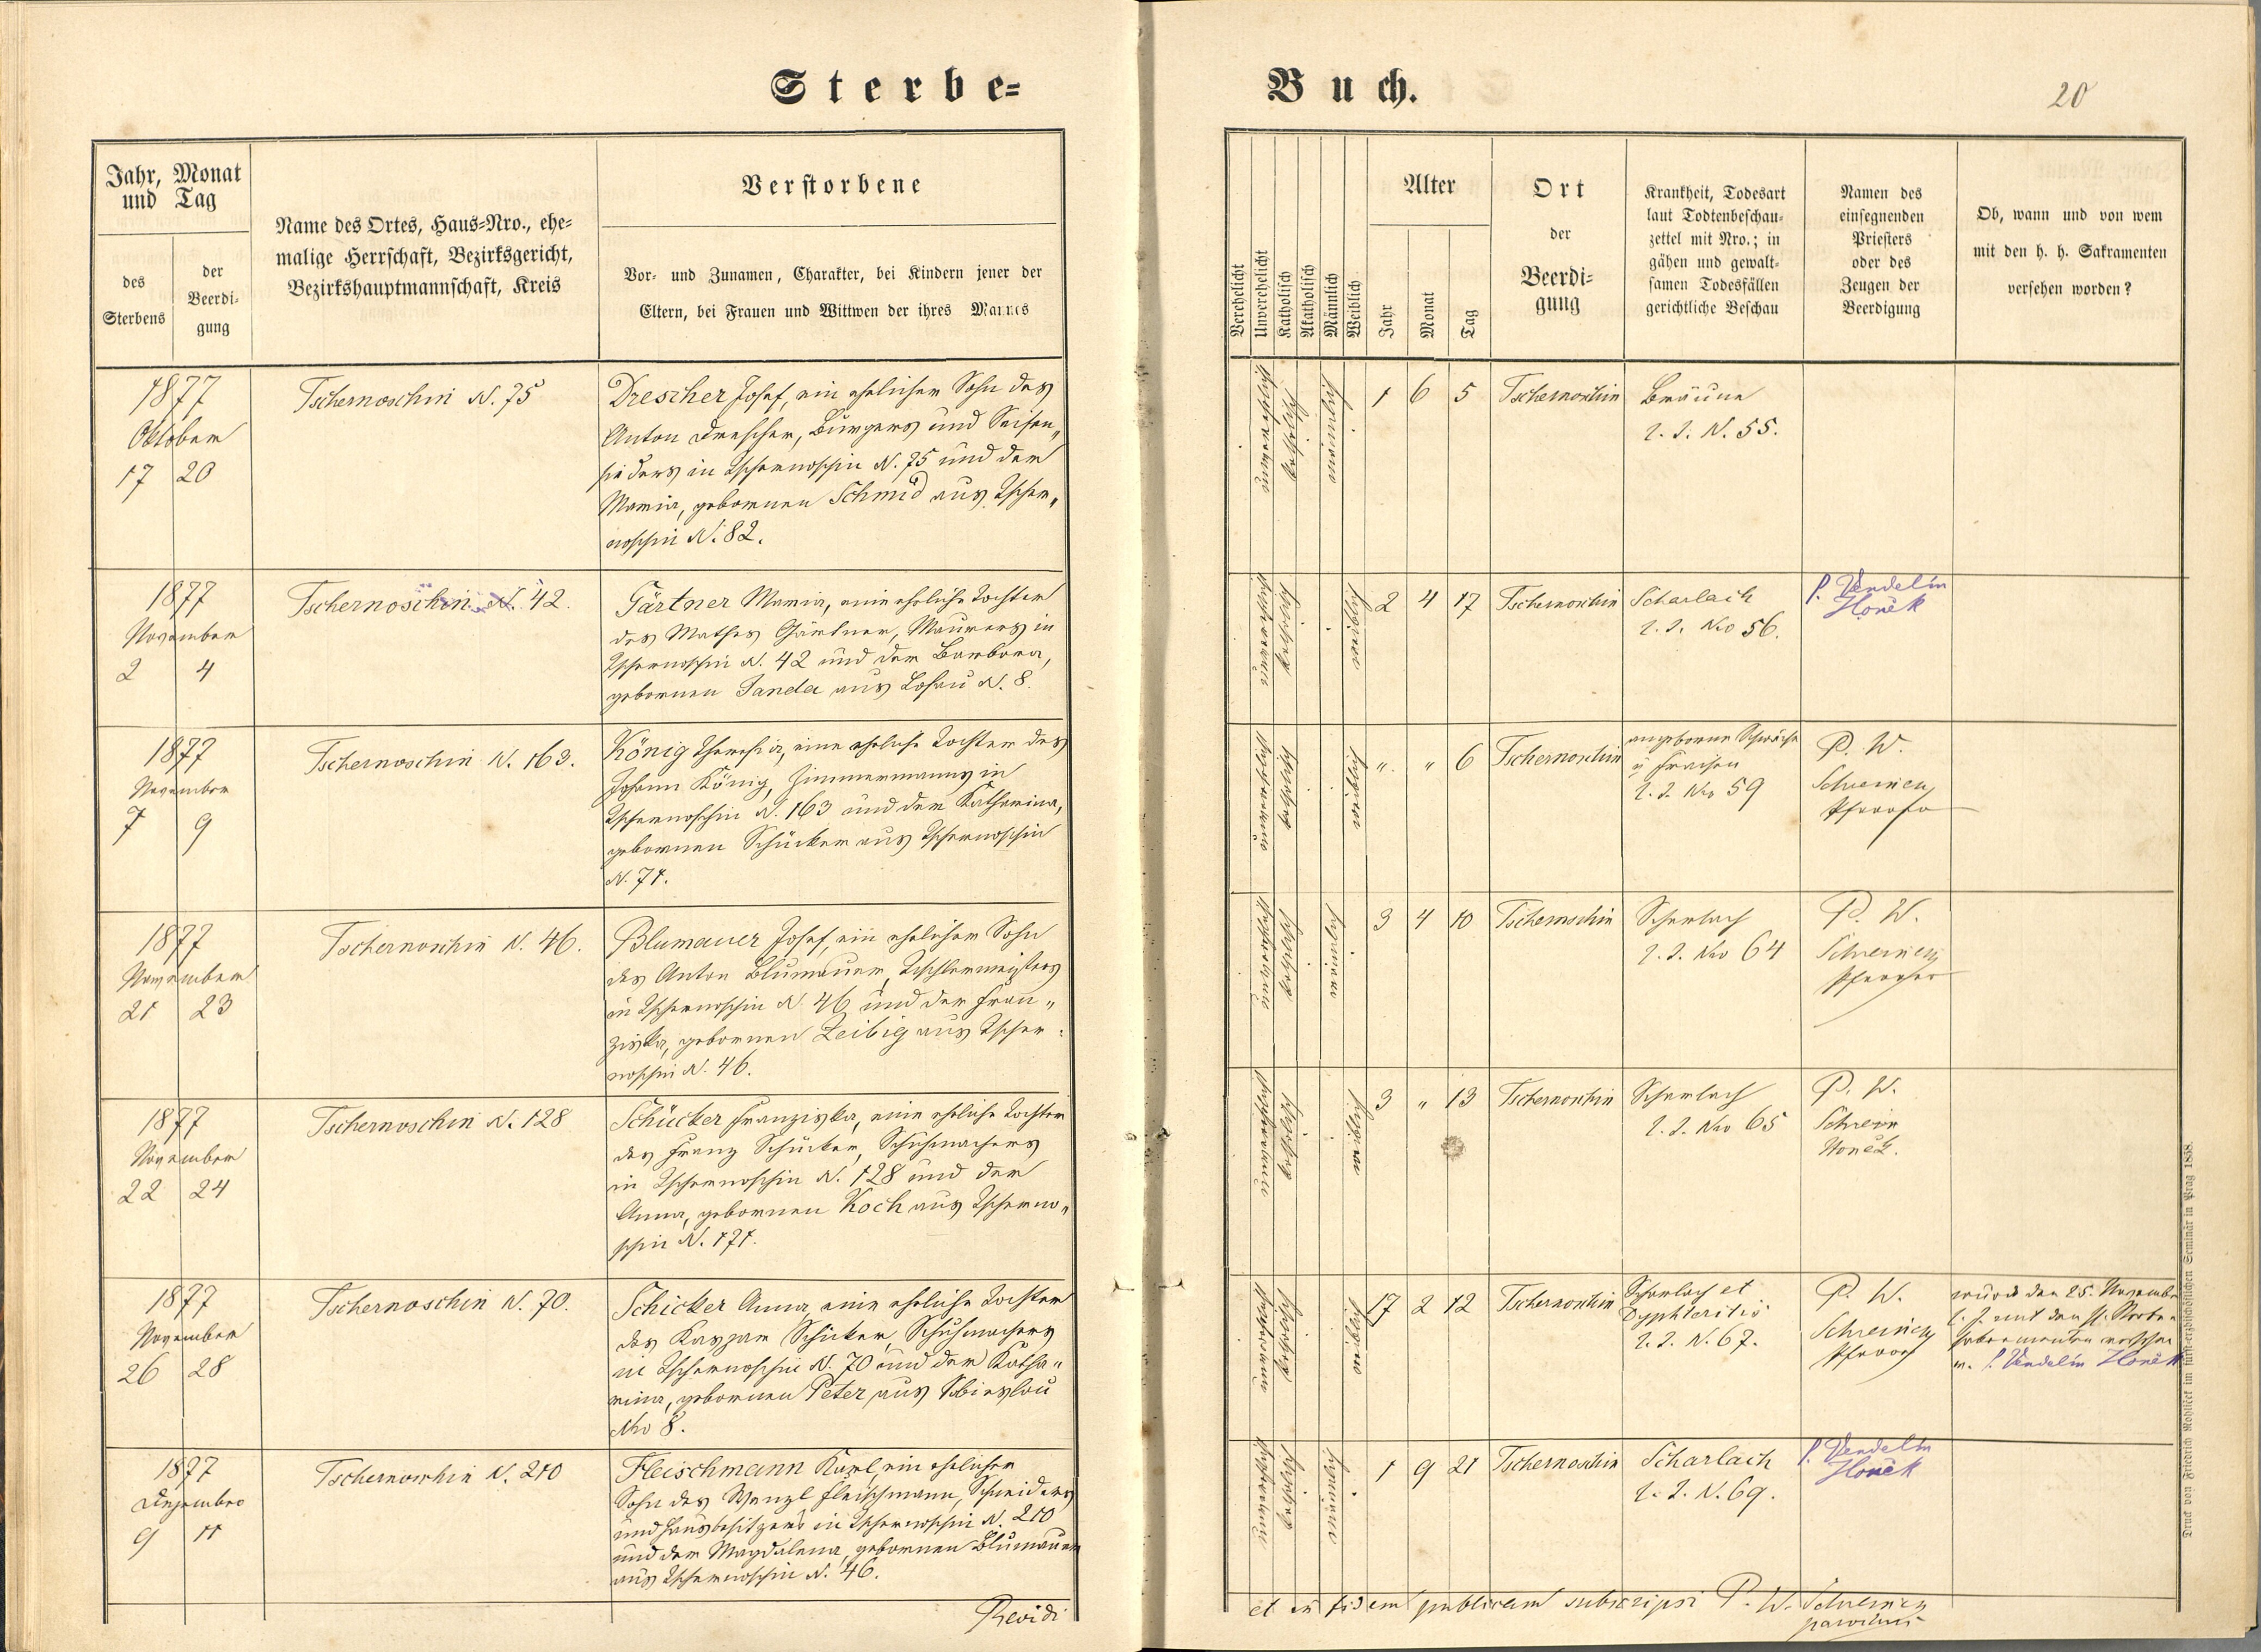 Sterbe-
Buch.
20
Jahr, Monat
und Tag
des
Sterbens
der
Beerdi-
gung
Name des Ortes, Haus-Nro., ehe-
malige Herrschaft, Bezirksgericht,
Bezirkshauptmannschaft, Kreis
Verstorbene
Vor- und Zunamen, Charakter, bei Kindern jener der
Eltern, bei Frauen und Wittwen der ihres Mannes
Verehelicht
Unverehelicht
Katholisch
Akatholisch
Männlich
Weiblich
Alter
Jahr
Monat
Tag
Ort
der
Beerdi-
gung
Krankheit, Todesart
laut Todtenbeschau-
zettel mit Nro.; in
gähen und gewalt-
samen Todesfällen
gerichtliche Beschau
Namen des
einsegnenden
Priesters
oder des
Zeugen der
Beerdigung
Ob, wann und von wem
mit den h. h. Sakramenten
versehen worden?
1877
Oktober
17 20
Tschernoschin N. 75
Drescher Josef, ein ehelicher Sohn des
Anton Drescher, Bürgers und Seifen„
sieders in Tschernoschin N. 75 und der
Maria, gebornen Schmid aus Tscher„
noschin N. 82.
unverehelicht
katholisch
männlich
1 6 5
Tschernoschin
Bräune
l. Z. N. 55.
1877
November
2 4
Tschernoschin N. 42.
Gärtner Maria, eine eheliche Tochter
des Mathes Gärtner, Maurers in
Tschernoschin N. 42 und der Barbara,
gebornen Janda aus Losau N. 8.
unverehelicht
katholisch
weiblich
2 4 17
Tschernoschin
Scharlach
l. Z. Nro 56.
P. Vendelín
Honěk
1877
November
7 9
Tschernoschin N. 163.
König Theresia, eine eheliche Tochter des
Johann König, Zimmermanns in
Tschernoschin N. 163 und der Katharina,
gebornen Schücker aus Tschernoschin
N. 71.
unverehelicht
katholisch
weiblich
„ „ 6
Tschernoschin
angeborne Schwäche
u Fraisen
l. Z. Nro 59
P. W.
Pfarrer
1877
November
21 23
Tschernoschin N. 46.
Blumauer Josef, ein ehelicher Sohn
des Anton Blumauer, Tischlermeisters
in Tschernoschin N. 46 und der Fran„
ziska, gebornen Leibig aus Tscher„
noschin N. 46.
unverehelicht
katholisch
männlich
3 4 10
Tschernoschin
Scharlach
l. Z. Nro 64
P. W.
Pfarrer
1877
November
22 24
Tschernoschin N. 128
Schücker Franziska, eine eheliche Tochter
des Franz Schücker, Schuhmachers
in Tschernoschin N. 128 und der
Anna, gebornen Koch aus Tscherno„
schin N. 171.
unverehelicht
katholisch
weiblich
3 „ 13
Tschernoschin
Scharlach
l. Z. Nro 65
P. W.
Honěk.
1877
November
26 28
Tschernoschin N. 70.
Schicker Anna, eine eheliche Tochter
des Kaspar Schicker, Schuhmachers
in Tschernoschin N. 70 und der Katha„
rina, gebornen Peter aus Sobieslau
Nro 8.
unverehelicht
katholisch
weiblich
17 2 12
Tschernoschin
Scharlach et
Dyphteritis
l. Z. N. 67.
P. W.
Pfarrer
wurde den 25. November
l. J. mit den hl. Sterbe-
sakramenten versehen
v. P. Vendelín Honěk
1877
Dezember
9 11
Tschernoschin N. 210
Fleischmann Karl, ein ehelicher
Sohn des Wenzl Fleischmann, Schneiders
und Hausbesitzers in Tschernoschin N. 210
und der Magdalena, gebornen Blumauer
aus Tschernoschin N. 46.
unverehelicht
katholisch
männlich
1 9 21
Tschernoschin
Scharlach
l. Z. N. 69.
P. Vendelín
Honěk
Revidi
et in fidem publicam subscripsi P. W.
parochus
Druck von Friedrich Rohliček im fürst-erzbischöflichen Seminär in Prag 1858.